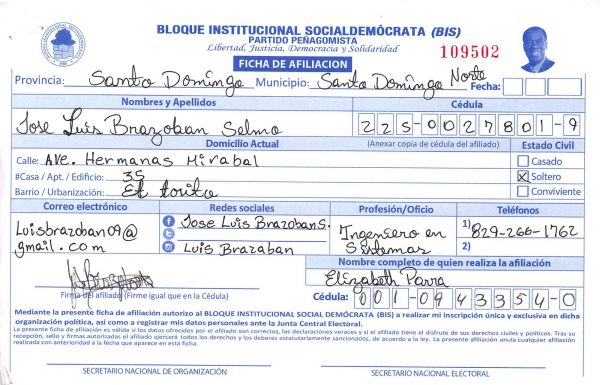 BLOQUE INSTITUCIONAL SOCIALDEMÓCRATA (BIS)
PARTIDO PEÑAGOMISTA
Libertad, Justicia, Democracia y Solidaridad
109502
FICHA DE AFILIACION
Provincia: Santo Domingo Municipio: Santo Domingo Norte Fecha:
Nombres y Apellidos Cédula
Jose Luis Brazoban Selmo 225-0027801-9
Domicilio Actual (Anexar copia de cédula del afiliado) Estado Civil
Calle: Ave. Hermanas Mirabal Casado
#Casa / Apt. / Edificio: 35 X Soltero
Barrio / Urbanización: El torito Conviviente
Correo electrónico Redes sociales Profesión/Oficio Teléfonos
Luisbrazoban09@gmail.com Jose Luis Brazoban S. Ingeniero en Sistemas 1) 829-266-1762
Luis Brazaban 2)
Nombre completo de quien realiza la afiliación
Elizabeth Parra
Firma del afiliado (Firme igual que en la Cédula) Cédula: 001-0943354-0
Mediante la presente ficha de afiliación autorizo al BLOQUE INSTITUCIONAL SOCIAL DEMÓCRATA (BIS) a realizar mi inscripción única y exclusiva en dicha
organización política, así como a registrar mis datos personales ante la Junta Central Electoral.
La presente ficha de afiliación es válida si los datos ofrecidos por el afiliado son correctos, las declaraciones veraces y si el afiliado tiene el disfrute de sus derechos civiles y políticos. Tras su
recepción, sello y firmas autorizadas el afiliado ejercerá todos los derechos y los deberes estatutariamente sancionados, de acuerdo a la ley. La presente afiliación anula cualquier afiliación
realizada con anterioridad a la fecha que aparece en esta ficha.
SECRETARIO NACIONAL DE ORGANIZACIÓN SECRETARIO NACIONAL ELECTORAL